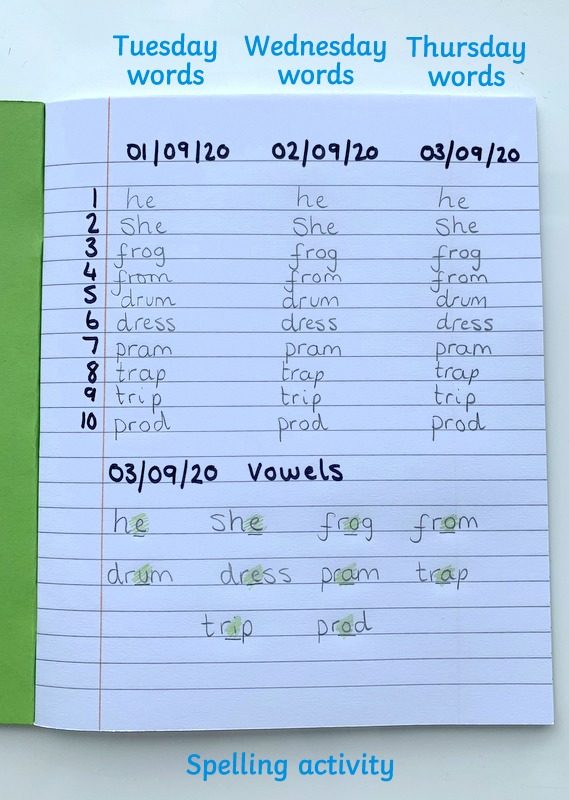 Tuesday Wednesday Thursday
words words words
01/09/20 02/09/20 03/09/20
1 he he he
2 She She She
3 frog frog frog
4 from from from
5 drum drum drum
6 dress dress dress
7 pram pram pram
8 trap trap trap
9 trip trip trip
10 prod prod prod
03/09/20 Vowels
he she frog from
drum dress pram trap
trip prod
Spelling activity